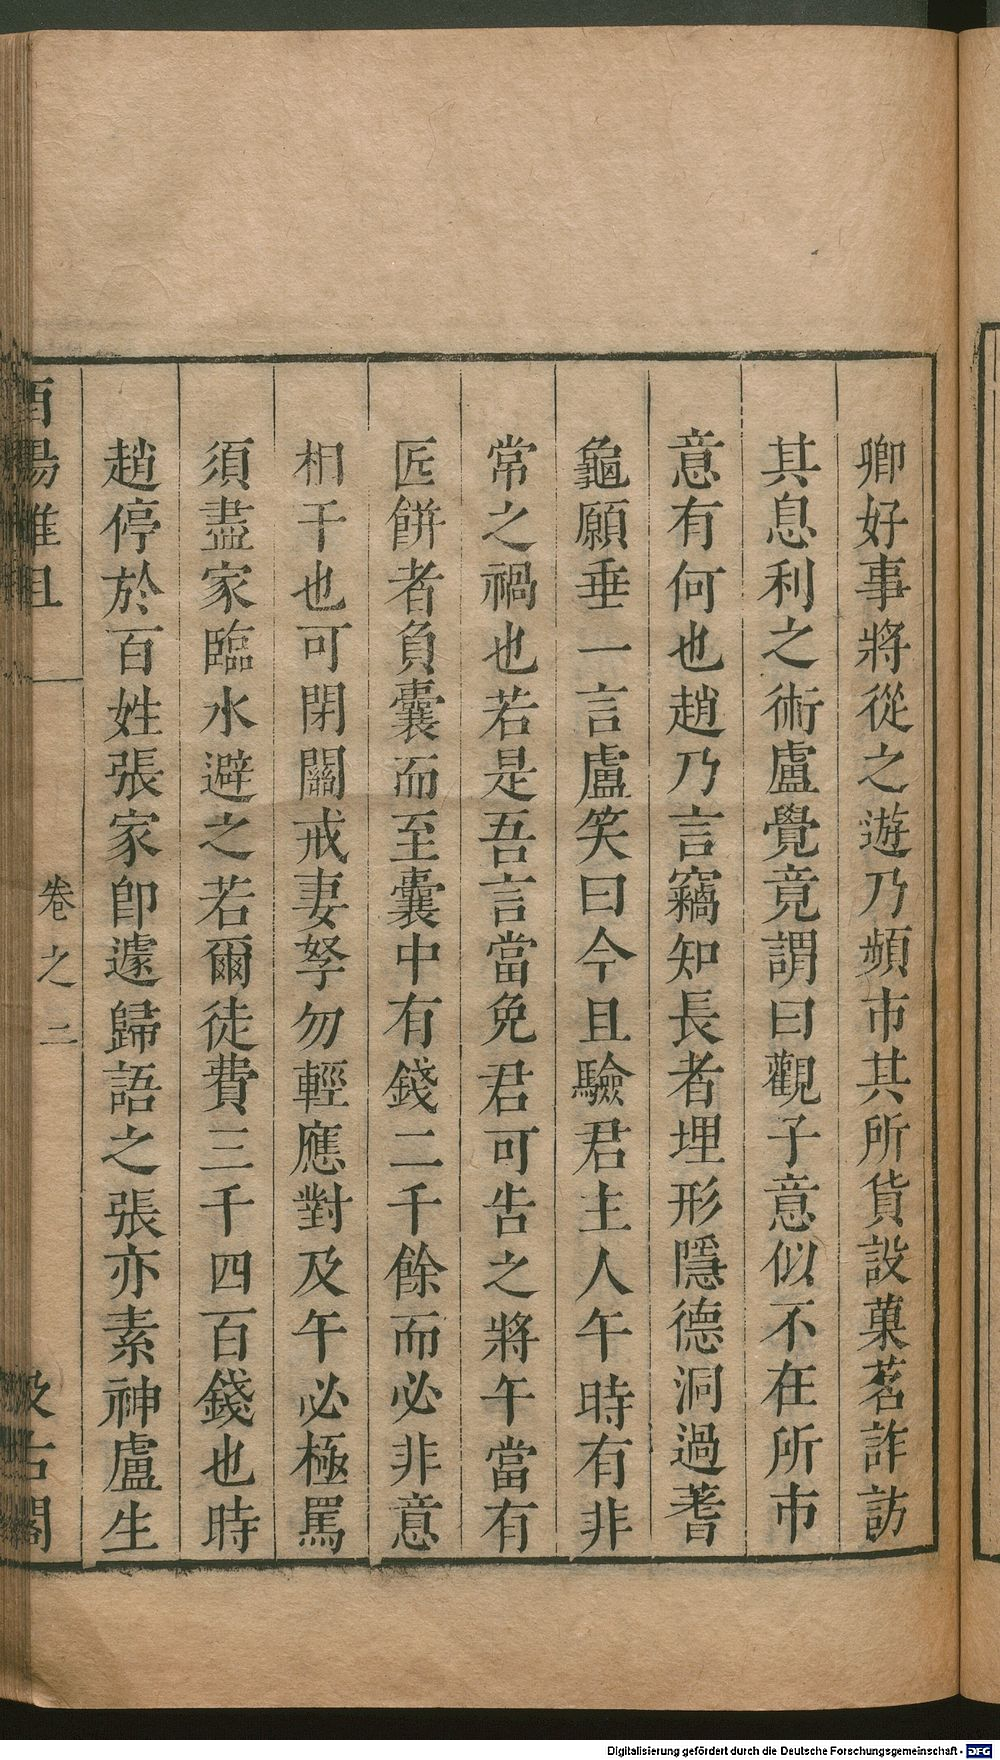 卿好事將從之遊乃頻市其所貨設菓茗詐訪
其息利之術盧覺竟謂曰觀子意似不在所市
意有何也趙乃言竊知長者埋形隱德洞過蓍
龜願垂一言盧笑曰今且驗君主人午時有非
常之禍也若是吾言當免君可告之將午當有
匠餅者負囊而至囊中有錢二千餘而必非意
相干也可閉關戒妻孥勿輕應對及午必極罵
須盡家臨水避之若爾徒費三千四百錢也時
趙停於百姓張家卽遽歸語之張亦素神盧生
酉陽雜俎
卷之二
汲古閣
Digitalisierung gefördert durch die Deutsche Forschungsgemeinschaft - DFG